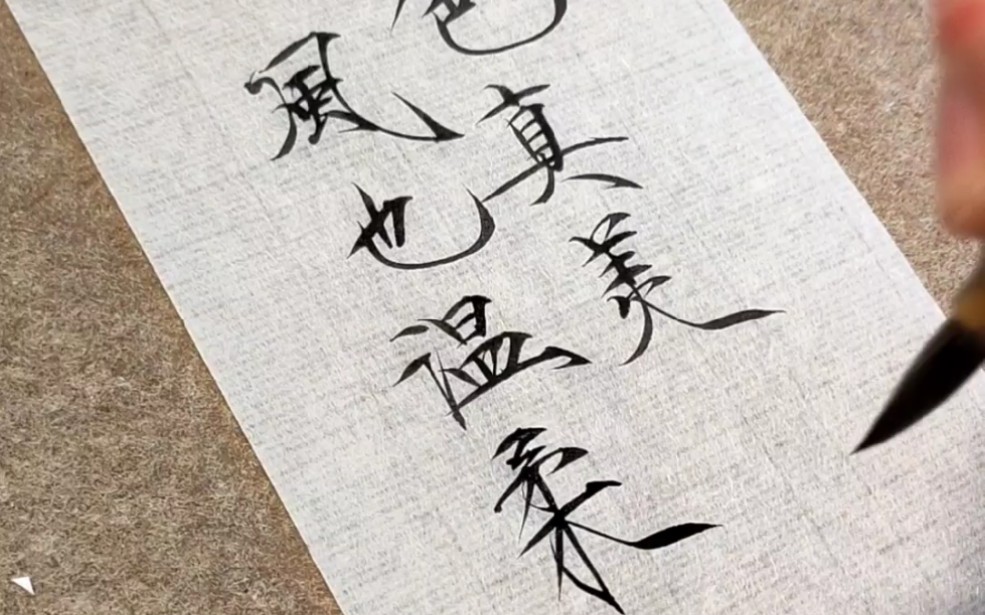 色真美
風也温柔